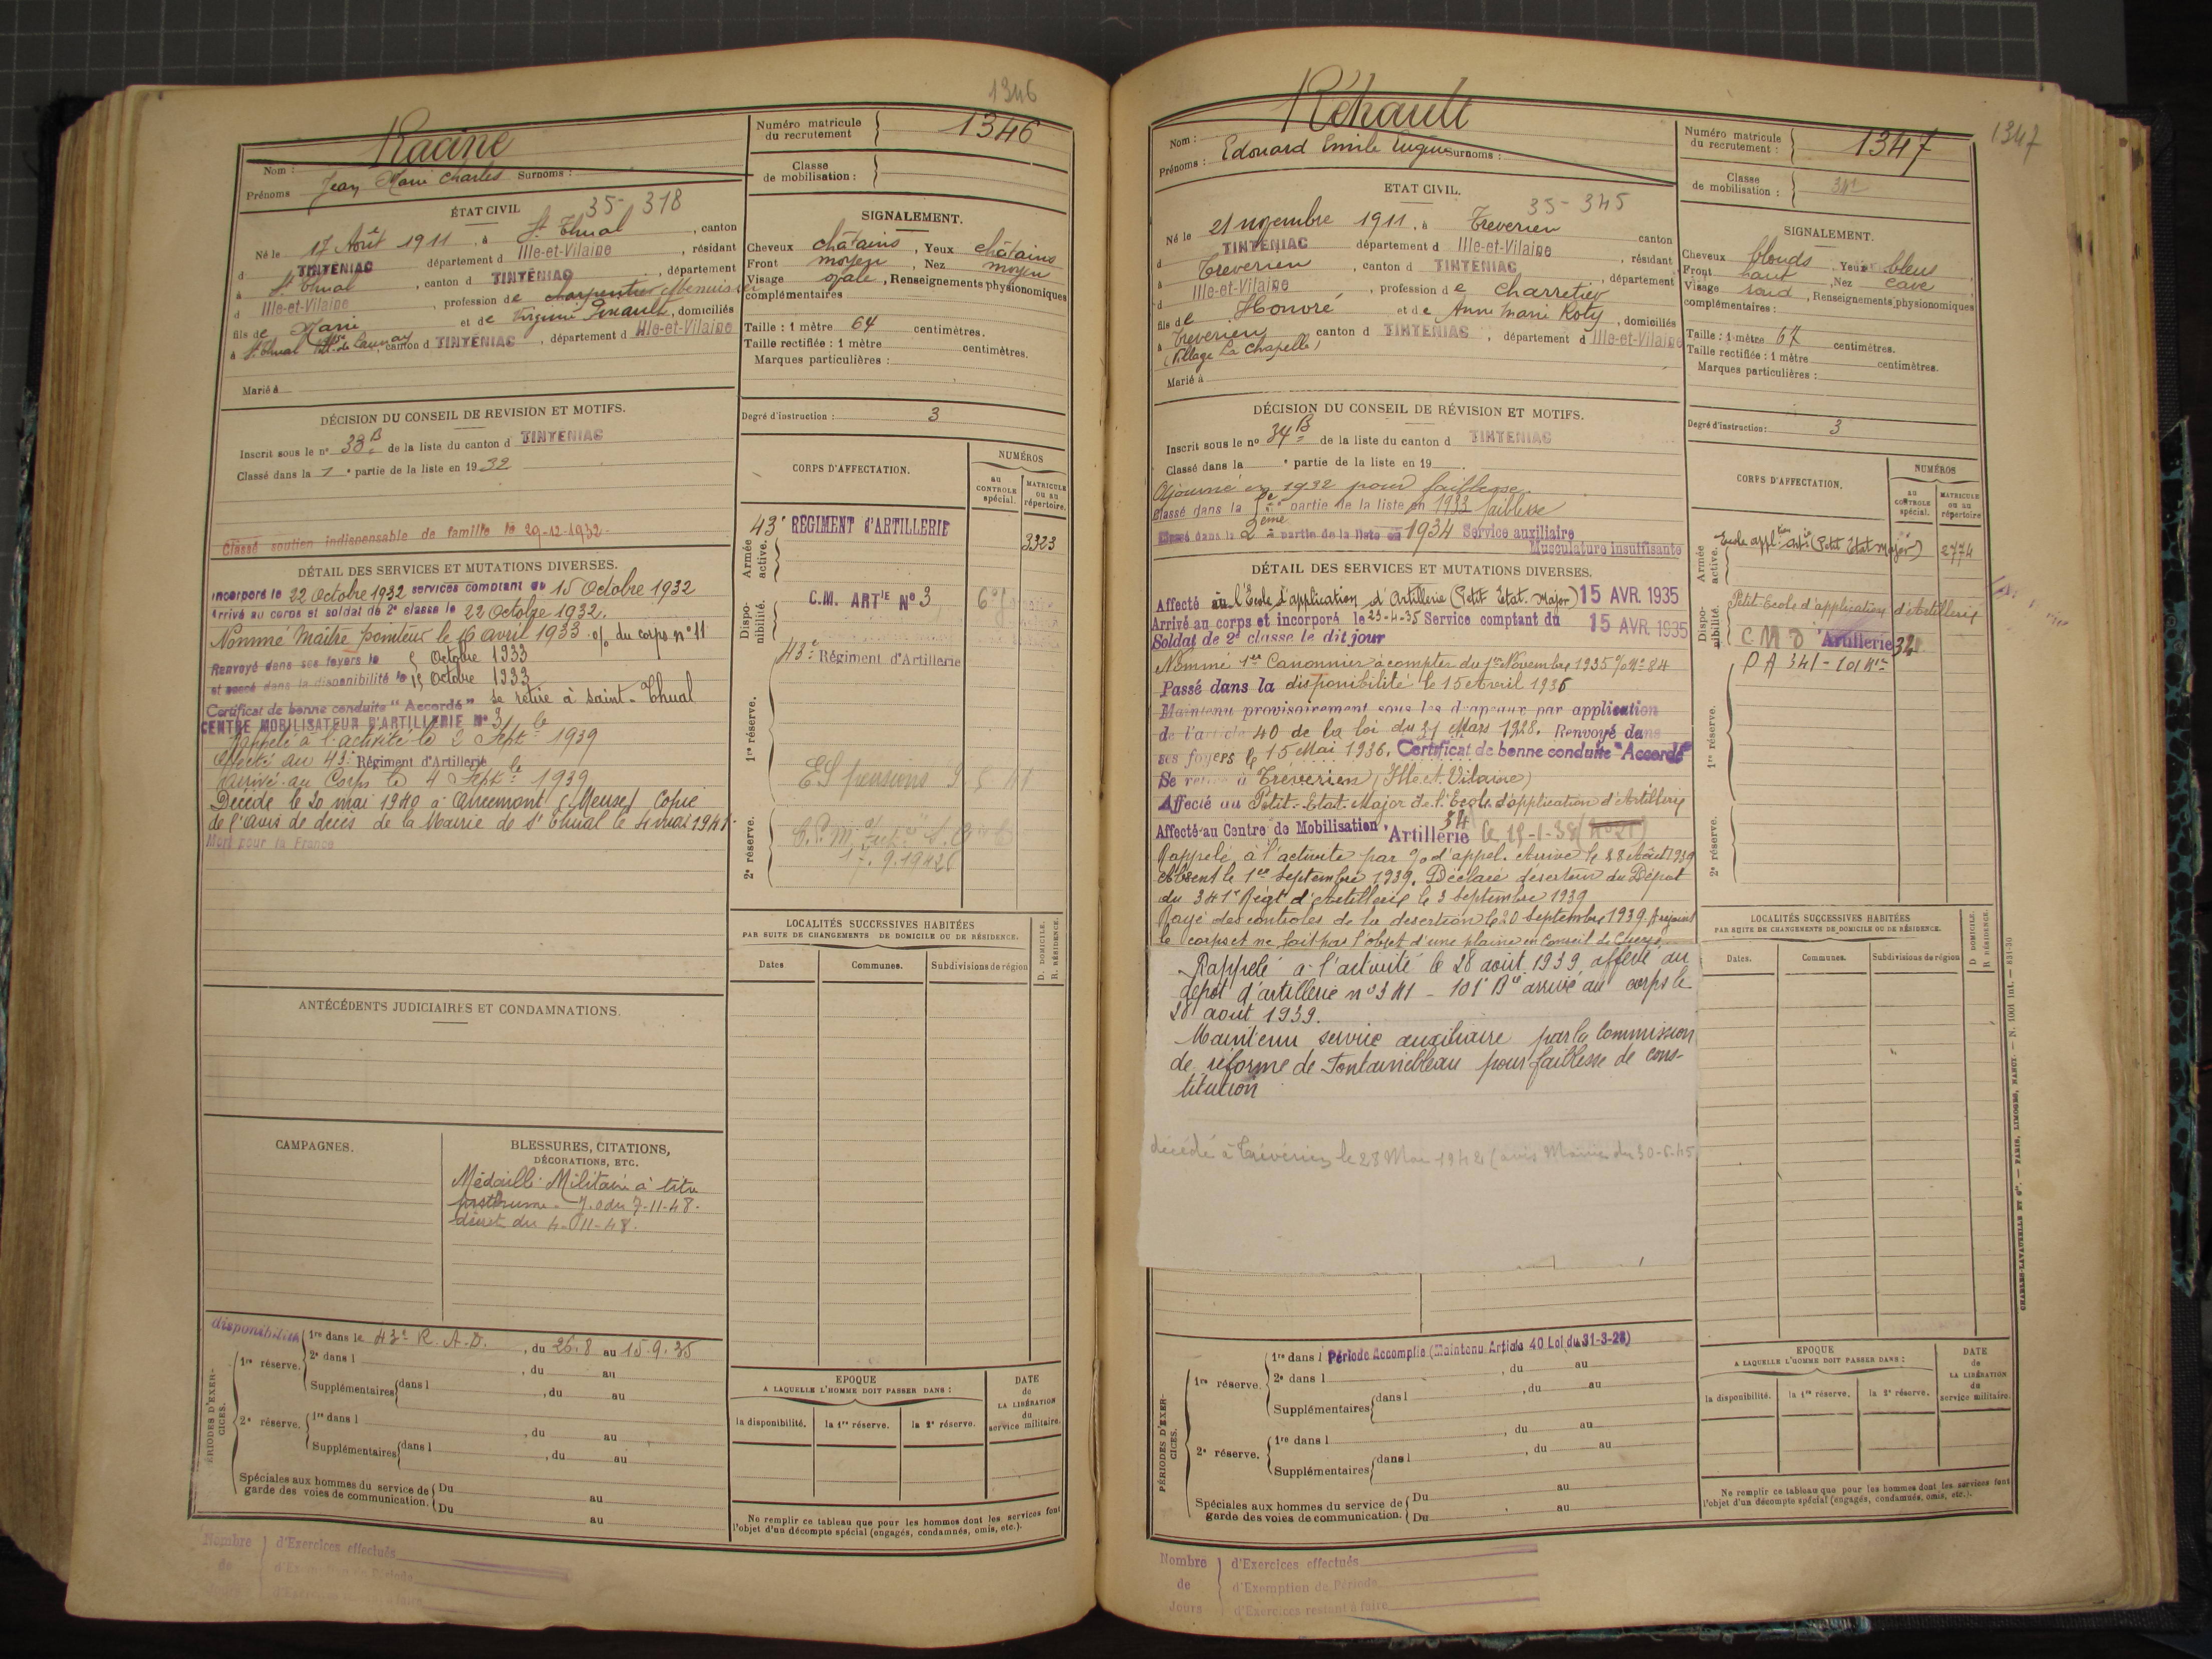 1346
Racine
Nom :
Prénoms Jean Marie Charles Surnoms :
Numéro matricule du recrutement 1346
Classe de mobilisation :
ÉTAT CIVIL 35- 318
Né le 17 Août 1911, à St Thual, canton
d TINTENIAC département d Ille-et-Vilaine, résidant
à St Thual, canton d TINTENIAC, département
d Ille-et-Vilaine, profession de charpentier Menuisier
fils de Marie et de Virginie Pinault, domiciliés
à St Thual canton d TINTENIAC, département d Ille-et-Vilaine
Marié à
SIGNALEMENT.
Cheveux châtains, Yeux châtains
Front moyen, Nez moyen
Visage ovale, Renseignements physionomiques
complémentaires
Taille : 1 mètre 64 centimètres.
Taille rectifiée : 1 mètre centimètres.
Marques particulières :
DÉCISION DU CONSEIL DE REVISION ET MOTIFS.
Inscrit sous le n° 33 B de la liste du canton d TINTENIAC
Classé dans la 1e partie de la liste en 1932
Classé soutien indispensable de famille le 29-12-1932.
Degré d'instruction : 3
DÉTAIL DES SERVICES ET MUTATIONS DIVERSES.
Incorporé le 22 Octobre 1932 services comptant du 15 Octobre 1932
Arrivé au corps et soldat de 2e classe le 22 Octobre 1932.
Nommé Maître pointeur le 16 avril 1933 % du corps n° 11
Renvoyé dans ses foyers le Octobre 1933
et passé dans la disponibilité le 15 Octobre 1933
Certificat de bonne conduite "Accordé" se retire à Saint-Thual
CENTRE MOBILISATEUR D'ARTILLERIE N° 3
Rappelé à l'activité le 2 Septbre 1939
Affecté au 43e Régiment d'Artillerie
Arrivé au Corps le 4 Septbre 1939
Décédé le 20 mai 1940 à (Meuse) Copie
de l'avis de décès de la Mairie de St Thual le 4 mai 1941.
Mort pour la France
CORPS D'AFFECTATION.
NUMÉROS
au CONTROLE spécial.
MATRICULE ou au répertoire.
Armée active.
43e REGIMENT d'ARTILLERIE 3323
Disponibilité.
C.M. ARTIE N° 3
1re réserve.
43e Régiment d'Artillerie
2e réserve.
LOCALITÉS SUCCESSIVES HABITÉES
PAR SUITE DE CHANGEMENTS DE DOMICILE OU DE RÉSIDENCE.
D. DOMICILE.
R. RÉSIDENCE.
Dates Communes. Subdivisions de région
ANTÉCÉDENTS JUDICIAIRES ET CONDAMNATIONS.
CAMPAGNES.
BLESSURES, CITATIONS,
DÉCORATIONS, ETC.
Médaille Militaire à titre
posthume - J.O du 7-11-48.
décret du 4-11-48.
PÉRIODES D'EXERCICES.
disponibilité
1re réserve. 1re dans le 43e R.A.D., du 26.8 au 15.9.35
2e dans l, du au
Supplémentaires dans l, du au
2e réserve. 1re dans l, du au
Supplémentaires dans l, du au
Spéciales aux hommes du service de garde des voies de communication. Du au
Du au
EPOQUE
A LAQUELLE L'HOMME DOIT PASSER DANS :
la disponibilité. la 1re réserve. la 2e réserve.
DATE de LA LIBÉRATION du service militaire.
Ne remplir ce tableau que pour les hommes dont les services font
l'objet d'un décompte spécial (engagés, condamnés, omis, etc.).
Nombre de d'Exercices effectués
1347
Réhault
Nom :
Prénoms : Edouard Emile Eugène Surnoms :
Numéro matricule du recrutement : 1347
Classe de mobilisation :
ETAT CIVIL. 35- 345
Né le 21 novembre 1911, à Treverien canton
d TINTENIAC département d Ille-et-Vilaine, résidant
à Treverien, canton d TINTENIAC, département
d Ille-et-Vilaine, profession de Charretier
fils de Honoré et de Anne Marie Roty, domiciliés
à Treverien canton d TINTENIAC, département d Ille-et-Vilaine
(Village La Chapelle)
Marié à
SIGNALEMENT.
Cheveux blonds, Yeux bleus,
Front haut, Nez cave
Visage rond, Renseignements physionomiques
complémentaires :
Taille : 1 mètre 67 centimètres.
Taille rectifiée : 1 mètre centimètres.
Marques particulières :
DÉCISION DU CONSEIL DE RÉVISION ET MOTIFS.
Inscrit sous le n° 34 B de la liste du canton d TINTENIAC
Classé dans la e partie de la liste en 19
Ajourné en 1932 pour faiblesse
Classé dans la partie de la liste en 1933 faiblesse
Classé dans la 2ème partie de la liste en 1934 Service auxiliaire
Musculature insuffisante
Degré d'instruction : 3
DÉTAIL DES SERVICES ET MUTATIONS DIVERSES.
Affecté à l'Ecole d'application d'Artillerie (Petit Etat. Major) 15 AVR. 1935
Arrivé au corps et incorporé le 23-4-35 Service comptant du 15 AVR. 1935
Soldat de 2e classe le dit jour
Nommé 1er Canonnier à compter du 1er Novembre 1935 % N° 84
Passé dans la disponibilité le 15 Avril 1936
Maintenu provisoirement sous les drapeaux par application
de l'article 40 de la loi du 31 Mars 1928. Renvoyé dans
ses foyers le 15 Mai 1936. Certificat de bonne conduite "Accordé"
Se retire à Tréverien (Ille et Vilaine)
Affecté au Petit-Etat-Major de l'Ecole d'application d'Artillerie
Affecté au Centre de Mobilisation Artillerie 34
Rappelé à l'activité par % d'appel. Arrivé le 28 Août 1939
Absent le 1er Septembre 1939. Déclaré déserteur du Dépôt
du 341e Régt d'Artillerie le 3 septembre 1939
Rayé des contrôles de la désertion le 20 septembre 1939. A rejoint
le corps et ne fait pas l'objet d'une plainte en Conseil de Guerre
Rappelé à l'activité le 28 août 1939, affecté au
dépôt d'artillerie n° 341 - 101e Bie arrivé au corps le
28 août 1939.
Maintenu service auxiliaire par la Commission
de réforme de Fontainebleau pour faiblesse de cons-
titution
décédé à Trévérien le 28 Mai 1942 (avis Mairie du 30-6-45)
CORPS D'AFFECTATION.
NUMÉROS
AU CONTROLE spécial.
MATRICULE ou au répertoire
Armée active.
Ecole applon Artie (Petit Etat Major) 2774
Disponibilité.
Petit-Ecole d'application d'Artillerie
C M d'Artillerie 34
D A 341 - 101
1re réserve.
2e réserve.
LOCALITÉS SUCCESSIVES HABITÉES
PAR SUITE DE CHANGEMENTS DE DOMICILE OU DE RÉSIDENCE.
D DOMICILE.
R RÉSIDENCE.
Dates. Communes. Subdivisions de région
PÉRIODES D'EXERCICES.
1re réserve. 1re dans l Période Accomplie (Maintenu Article 40 Loi du 31-3-28)
2e dans l, du au
Supplémentaires dans l, du au
2e réserve. 1re dans l, du au
Supplémentaires dans l, du au
Spéciales aux hommes du service de garde des voies de communication. Du au
Du au
EPOQUE
A LAQUELLE L'HOMME DOIT PASSER DANS :
la disponibilité. la 1re réserve. la 2e réserve.
DATE de LA LIBÉRATION du service militaire.
Ne remplir ce tableau que pour les hommes dont les services font
l'objet d'un décompte spécial (engagés, condamnés, omis, etc.).
Nombre de Jours d'Exercices effectués
d'Exemption de Période
d'Exercices restant à faire
CHARLES-LAVAUZELLE ET Cie. — PARIS, LIMOGES, NANCY. — N. 1001 int. — 831-30